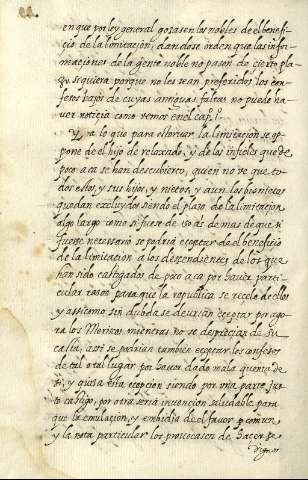 en que por ley general gozasen los nobles de el benefi-
cio de la limitacion, dandose orden que las infor-
maciones de la gente noble no pasen de cierto pla-
ço, siquiera porque no les sean preferidos los con-
fesos bajos de cuyas antiguas faltas no puede ha-
ver noticia como vemos en el cap.
Y a lo que para estorvar la limitacion se op-
pone de el hijo de relaxado, y de los infieles que de
poco aca se han descubierto, quien no ve que to-
dos ellos, y sus hijos, y nietos, y aun los bisnietos
quedan excluydos siendo el plazo de la limitacion
algo largo como si fuese de 150 as de mas de que si
fuesse necessario se podria exceptar de el beneficio
de la limitacion a los descendientes de los que
han sido castigados de poco aca por haver parti-
cular rason para que la republica se recele de ellos
y assi como sin dubda se devrian exceptar por ago-
ra los Moriscos mientras no se desprecian de su
casta, assi se podrian tambien exceptar los confesos
de tal o tal lugar por haver dado mala quenta de
si, y quisa esta excepcion siendo por una parte jus-
to castigo, por otra seria invencion saludable para
que la emulacion, y embidia de el favor comun,
y la nota particular los provocasen de hacerse
dignos